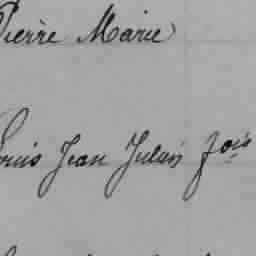 Pierre Marie
Louis Jean Julien fois